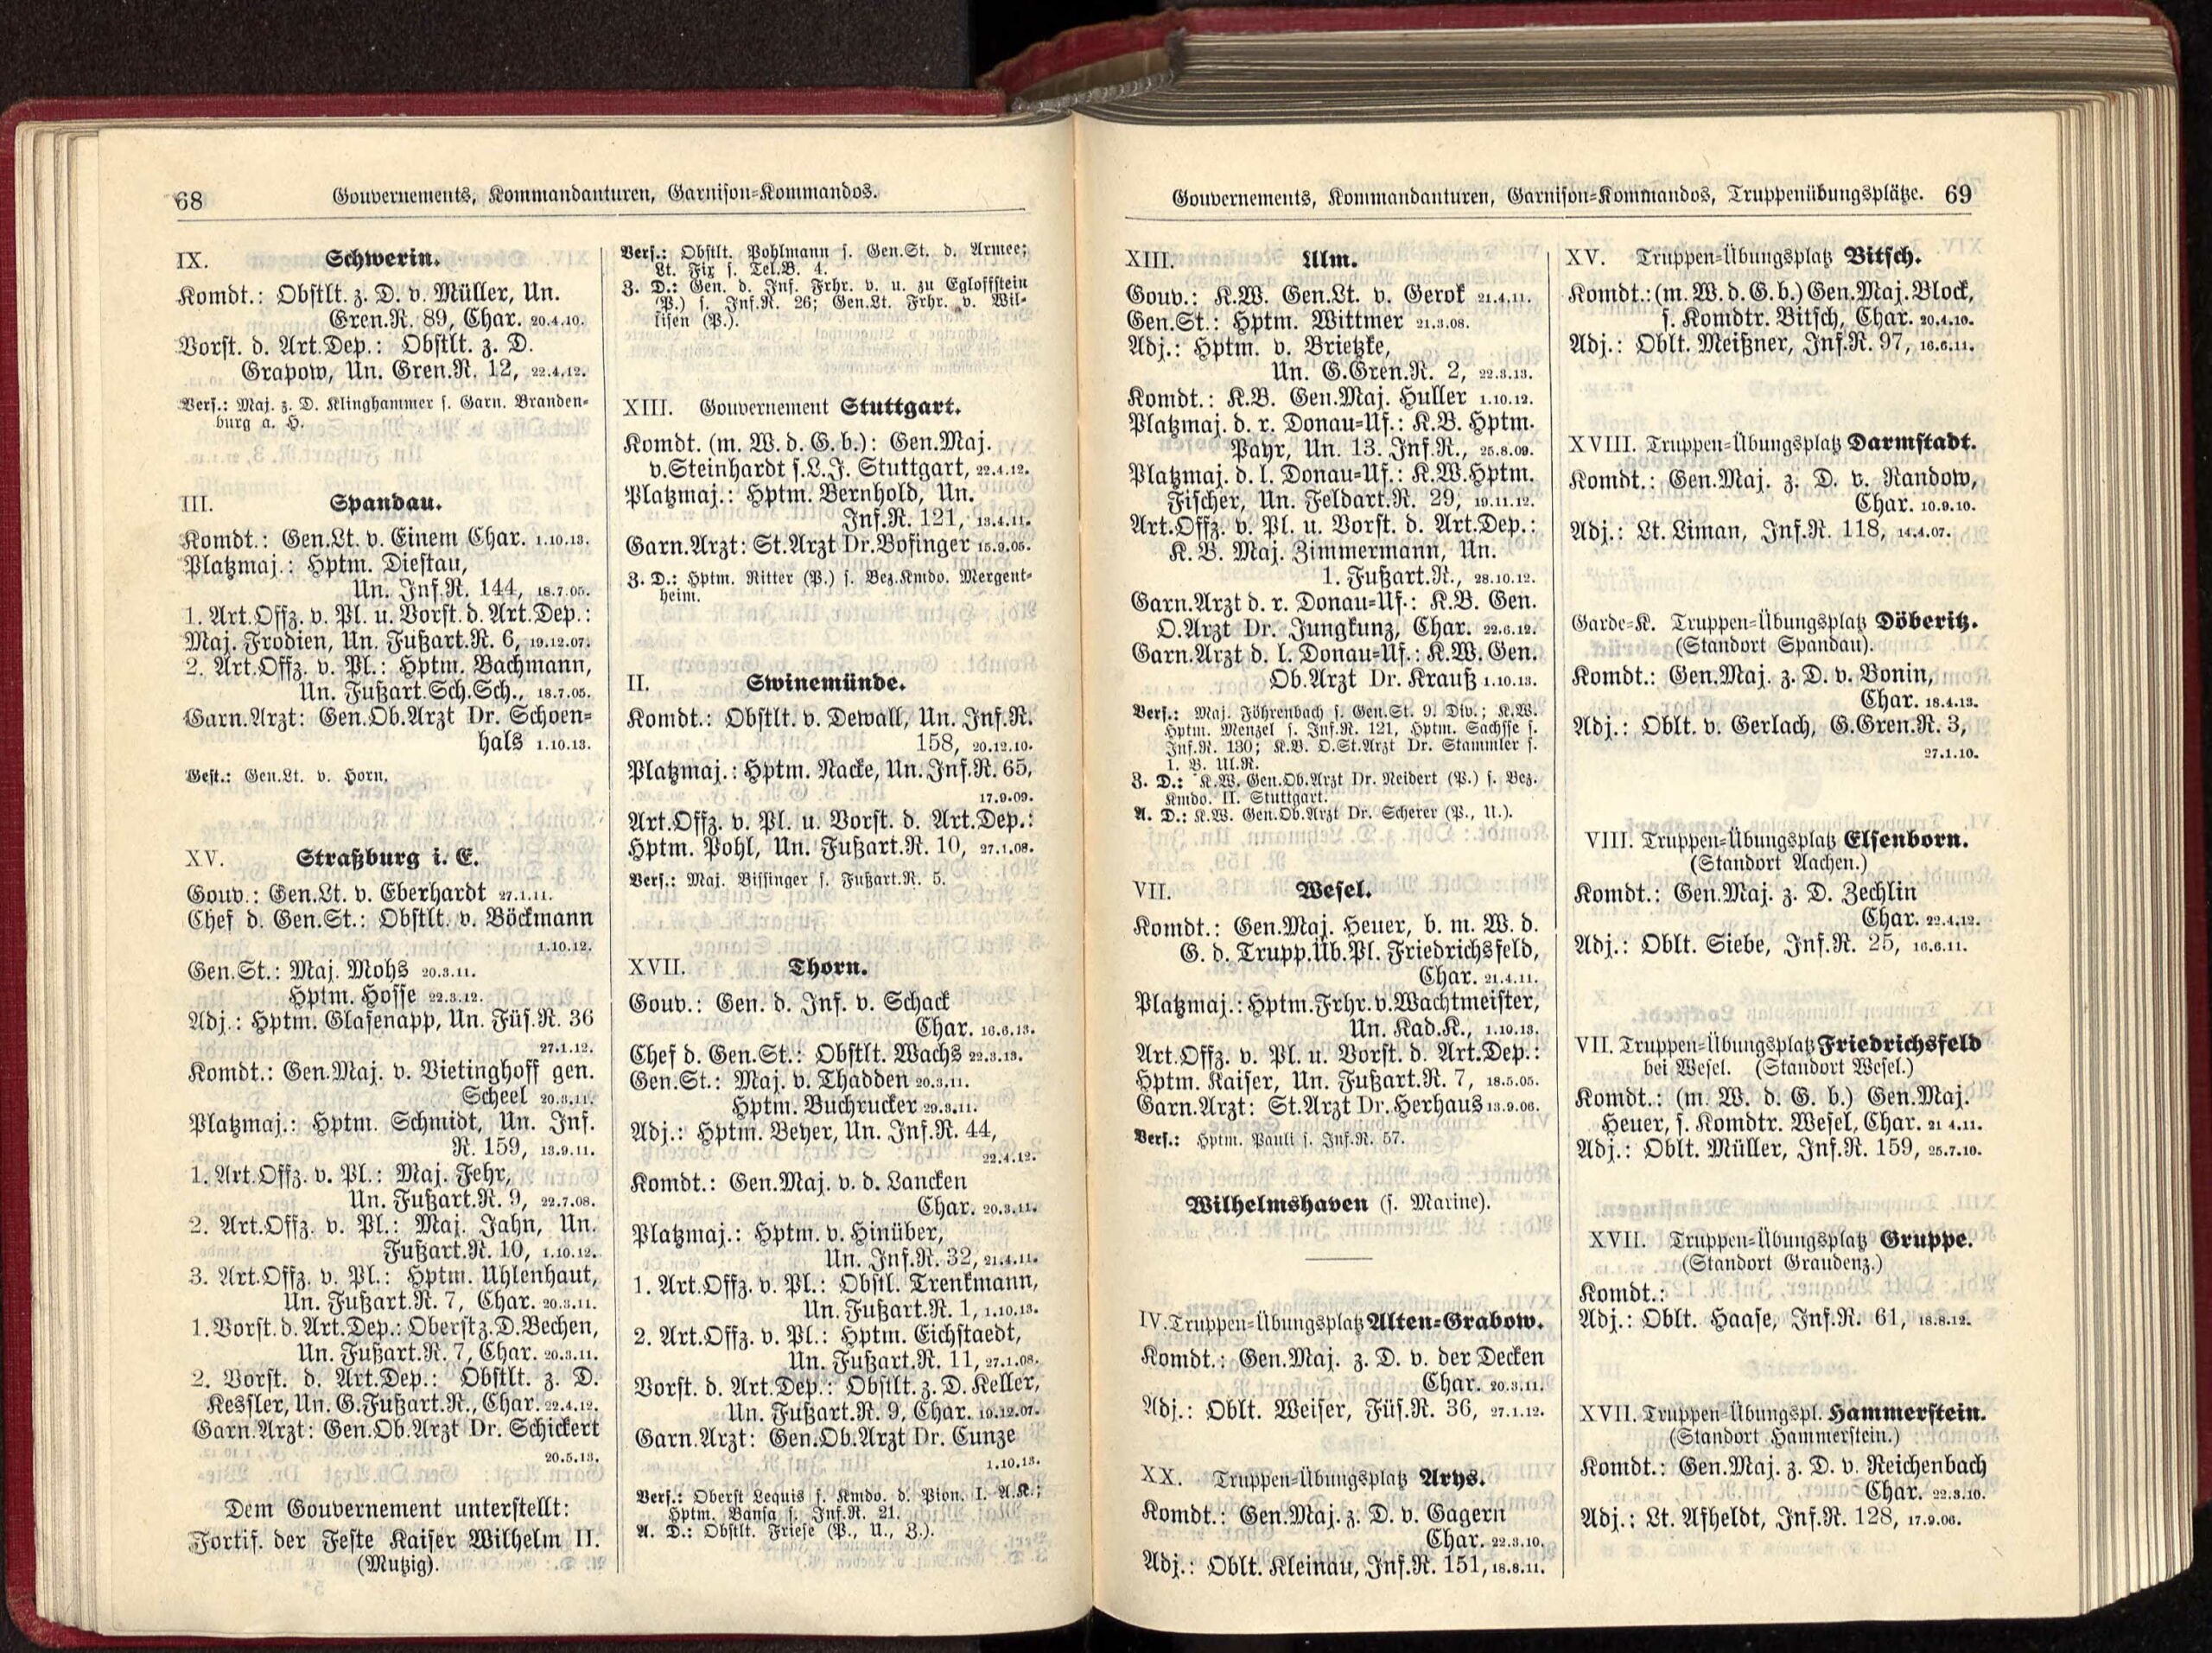 68
Gouvernements, Kommandanturen, Garnison=Kommandos.
IX. Schwerin.
Komdt.: Obstlt. z. D. v. Müller, Un.
Gren.R. 89, Char. 20.4.10.
Vorst. d. Art.Dep.: Obstlt. z. D.
Grapow, Un. Gren.R. 12, 22.4.12.
Vers.: Maj. z. D. Klinghammer s. Garn. Branden=
burg a. H.
III. Spandau.
Komdt.: Gen.Lt. v. Einem Char. 1.10.13.
Platzmaj.: Hptm. Diestau,
Un. Inf.R. 144, 18.7.05.
1. Art.Offz. v. Pl. u. Vorst. d. Art.Dep.:
Maj. Frodien, Un. Fußart.R. 6, 19.12.07.
2. Art.Offz. v. Pl.: Hptm. Bachmann,
Un. Fußart.Sch.Sch., 18.7.05.
Garn.Arzt: Gen.Ob.Arzt Dr. Schoen=
hals 1.10.13.
Gest.: Gen.Lt. v. Horn.
XV. Straßburg i. E.
Gouv.: Gen.Lt. v. Eberhardt 27.1.11.
Chef d. Gen.St.: Obstlt. v. Böckmann
1.10.12.
Gen.St.: Maj. Mohs 20.3.11.
Hptm. Hosse 22.3.12.
Adj.: Hptm. Glasenapp, Un. Füs.R. 36
27.1.12.
Komdt.: Gen.Maj. v. Vietinghoff gen.
Scheel 20.3.11.
Platzmaj.: Hptm. Schmidt, Un. Inf.
R. 159, 13.9.11.
1. Art.Offz. v. Pl.: Maj. Fehr,
Un. Fußart.R. 9, 22.7.08.
2. Art.Offz. v. Pl.: Maj. Jahn, Un.
Fußart.R. 10, 1.10.12.
3. Art.Offz. v. Pl.: Hptm. Uhlenhaut,
Un. Fußart.R. 7, Char. 20.3.11.
1. Vorst. d. Art.Dep.: Oberst z. D. Bechen,
Un. Fußart.R. 7, Char. 20.3.11.
2. Vorst. d. Art.Dep.: Obstlt. z. D.
Kessler, Un. G.Fußart.R., Char. 22.4.12.
Garn.Arzt: Gen.Ob.Arzt Dr. Schickert
20.5.13.
Dem Gouvernement unterstellt:
Fortif. der Feste Kaiser Wilhelm II.
(Mutzig).
Vers.: Obstlt. Pohlmann s. Gen.St. d. Armee;
Lt. Fix s. Tel.B. 4.
Z. D.: Gen. d. Inf. Frhr. v. u. zu Egloffstein
(P.) s. Inf.R. 26; Gen.Lt. Frhr. v. Wil=
lisen (P.).
XIII. Gouvernement Stuttgart.
Komdt. (m. W. d. G. b.): Gen.Maj.
v. Steinhardt s. L.I. Stuttgart, 22.4.12.
Platzmaj.: Hptm. Bernhold, Un.
Inf.R. 121, 13.4.11.
Garn.Arzt: St.Arzt Dr. Bofinger 15.9.05.
Z. D.: Hptm. Ritter (P.) s. Bez.Kmdo. Mergent=
heim.
II. Swinemünde.
Komdt.: Obstlt. v. Dewall, Un. Inf.R.
158, 20.12.10.
Platzmaj.: Hptm. Nacke, Un. Inf.R. 65,
17.9.09.
Art.Offz. v. Pl. u. Vorst. d. Art.Dep.:
Hptm. Pohl, Un. Fußart.R. 10, 27.1.08.
Vers.: Maj. Bissinger s. Fußart.R. 5.
XVII. Thorn.
Gouv.: Gen. d. Inf. v. Schack
Char. 16.6.13.
Chef d. Gen.St.: Obstlt. Wachs 22.3.13.
Gen.St.: Maj. v. Thadden 20.3.11.
Hptm. Buchrucker 29.3.11.
Adj.: Hptm. Beyer, Un. Inf.R. 44,
22.4.12.
Komdt.: Gen.Maj. v. d. Lancken
Char. 20.3.11.
Platzmaj.: Hptm. v. Hinüber,
Un. Inf.R. 32, 21.4.11.
1. Art.Offz. v. Pl.: Obstl. Trenkmann,
Un. Fußart.R. 1, 1.10.13.
2. Art.Offz. v. Pl.: Hptm. Eichstaedt,
Un. Fußart.R. 11, 27.1.08.
Vorst. d. Art.Dep.: Obstlt. z. D. Keller,
Un. Fußart.R. 9, Char. 19.12.07.
Garn.Arzt: Gen.Ob.Arzt Dr. Cunze
1.10.13.
Vers.: Oberst Lequis s. Kmdo. d. Pion. I. A.K.;
Hptm. Bansa s. Inf.R. 21.
A. D.: Obstlt. Friese (P., U., Z.).
Gouvernements, Kommandanturen, Garnison=Kommandos, Truppenübungsplätze. 69
XIII. Ulm.
Gouv.: K.W. Gen.Lt. v. Gerok 21.4.11.
Gen.St.: Hptm. Wittmer 21.3.08.
Adj.: Hptm. v. Brietzke,
Un. G.Gren.R. 2, 22.3.13.
Komdt.: K.B. Gen.Maj. Huller 1.10.12.
Platzmaj. d. r. Donau=Uf.: K.B. Hptm.
Payr, Un. 13. Inf.R., 25.8.09.
Platzmaj. d. l. Donau=Uf.: K.W. Hptm.
Fischer, Un. Feldart.R. 29, 19.11.12.
Art.Offz. v. Pl. u. Vorst. d. Art.Dep.:
K. B. Maj. Zimmermann, Un.
1. Fußart.R., 28.10.12.
Garn.Arzt d. r. Donau=Uf.: K.B. Gen.
O.Arzt Dr. Jungkunz, Char. 22.6.12.
Garn.Arzt d. l. Donau=Uf.: K.W. Gen.
Ob.Arzt Dr. Krauß 1.10.13.
Vers.: Maj. Föhrenbach s. Gen.St. 9. Div.; K.W.
Hptm. Menzel s. Inf.R. 121, Hptm. Sachsse s.
Inf.R. 130; K.B. O.St.Arzt Dr. Stammler s.
1. B. Ul.R.
Z. D.: K.W. Gen.Ob.Arzt Dr. Neidert (P.) s. Bez.
Kmdo. II. Stuttgart.
A. D.: K.W. Gen.Ob.Arzt Dr. Scherer (P., U.).
VII. Wesel.
Komdt.: Gen.Maj. Heuer, b. m. W. d.
G. d. Trupp.Üb.Pl. Friedrichsfeld,
Char. 21.4.11.
Platzmaj.: Hptm. Frhr. v. Wachtmeister,
Un. Kad.K., 1.10.13.
Art.Offz. v. Pl. u. Vorst. d. Art.Dep.:
Hptm. Kaiser, Un. Fußart.R. 7, 18.5.05.
Garn.Arzt: St.Arzt Dr. Herhaus 13.9.06.
Vers.: Hptm. Pauli s. Inf.R. 57.
Wilhelmshaven (s. Marine).
IV. Truppen=Übungsplatz Alten=Grabow.
Komdt.: Gen.Maj. z. D. v. der Decken
Char. 20.3.11.
Adj.: Oblt. Weiser, Füs.R. 36, 27.1.12.
XX. Truppen=Übungsplatz Arys.
Komdt.: Gen.Maj. z. D. v. Gagern
Char. 22.3.10.
Adj.: Oblt. Kleinau, Inf.R. 151, 18.8.11.
XV. Truppen=Übungsplatz Bitsch.
Komdt.: (m. W. d. G. b.) Gen.Maj. Block,
s. Komdtr. Bitsch, Char. 20.4.10.
Adj.: Oblt. Meißner, Inf.R. 97, 16.6.11.
XVIII. Truppen=Übungsplatz Darmstadt.
Komdt.: Gen.Maj. z. D. v. Randow,
Char. 10.9.10.
Adj.: Lt. Liman, Inf.R. 118, 14.4.07.
Garde=K. Truppen=Übungsplatz Döberitz.
(Standort Spandau).
Komdt.: Gen.Maj. z. D. v. Bonin,
Char. 18.4.13.
Adj.: Oblt. v. Gerlach, G.Gren.R. 3,
27.1.10.
VIII. Truppen=Übungsplatz Elsenborn.
(Standort Aachen.)
Komdt.: Gen.Maj. z. D. Zechlin
Char. 22.4.12.
Adj.: Oblt. Siebe, Inf.R. 25, 16.6.11.
VII. Truppen=Übungsplatz Friedrichsfeld
bei Wesel. (Standort Wesel.)
Komdt.: (m. W. d. G. b.) Gen.Maj.
Heuer, s. Komdtr. Wesel, Char. 21 4.11.
Adj.: Oblt. Müller, Inf.R. 159, 25.7.10.
XVII. Truppen=Übungsplatz Gruppe.
(Standort Graudenz.)
Komdt.:
Adj.: Oblt. Haase, Inf.R. 61, 18.8.12.
XVII. Truppen=Übungspl. Hammerstein.
(Standort Hammerstein.)
Komdt.: Gen.Maj. z. D. v. Reichenbach
Char. 22.3.10.
Adj.: Lt. Afheldt, Inf.R. 128, 17.9.06.